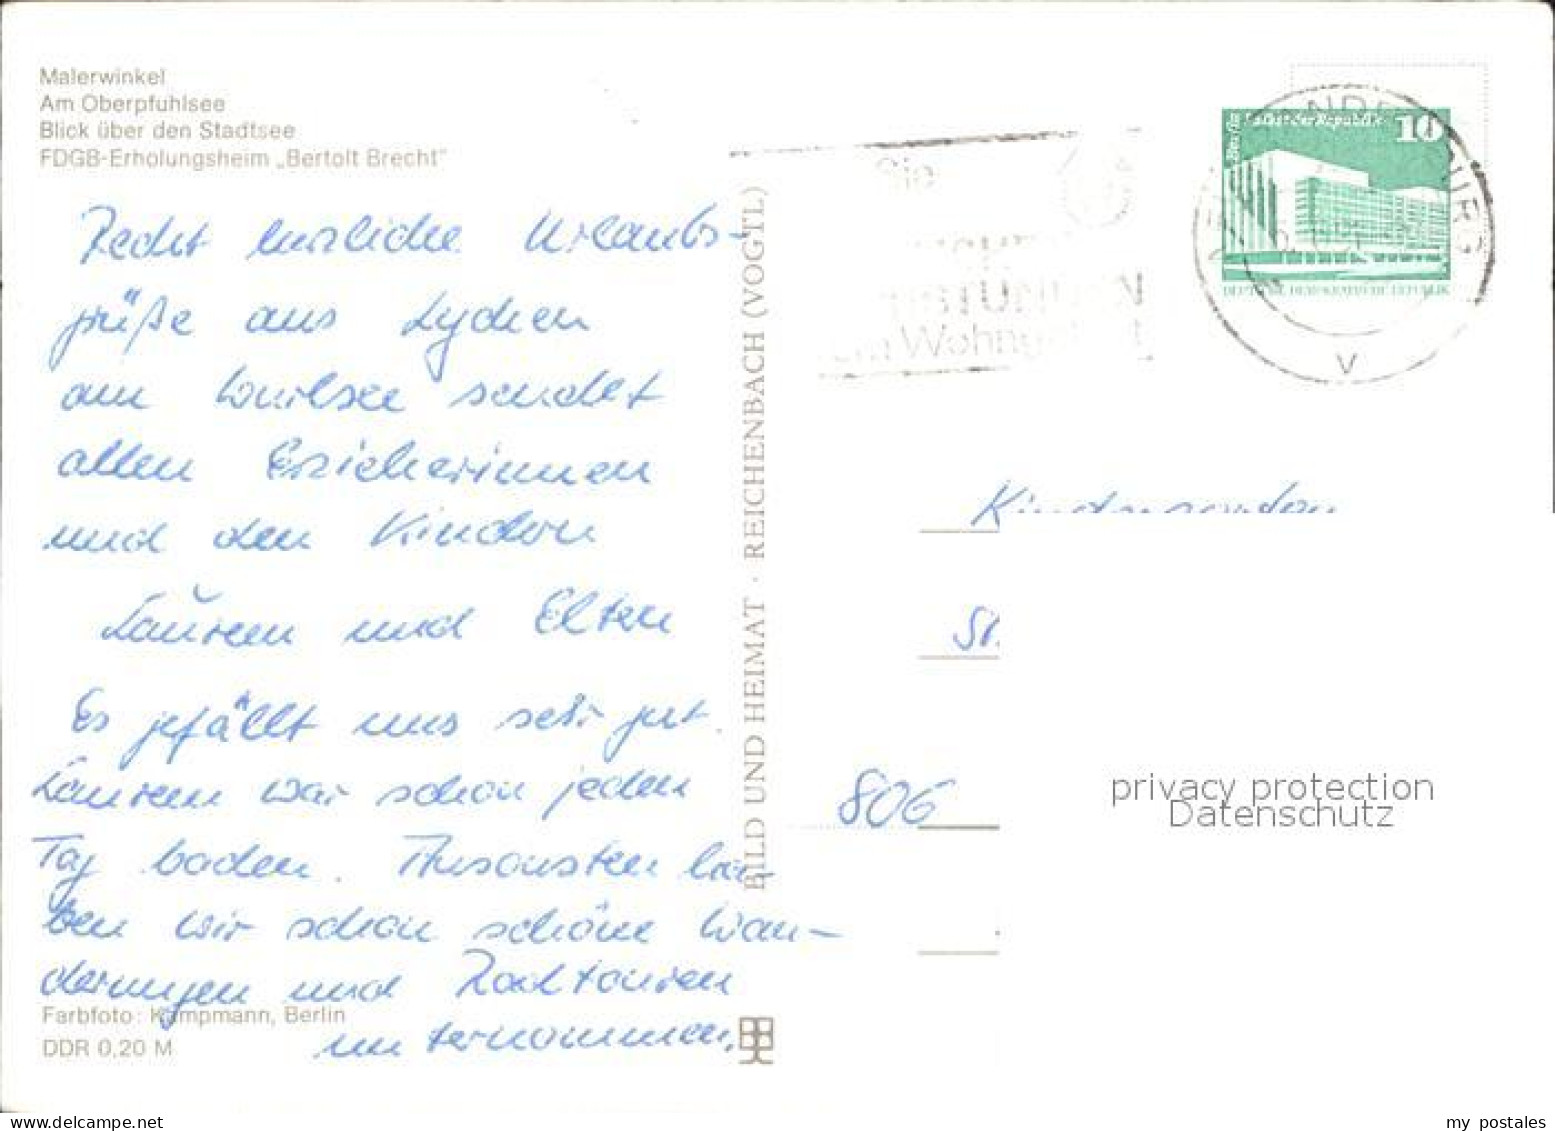 Malerwinkel
Am Oberpfuhlsee
Blick über den Stadtsee
FDGB-Erholungsheim „Bertolt Brecht"
Recht herzliche Urlaubs-
grüße aus Lychen
am Wurlsee sendet
allen Erzieherinnen
und den Kindern
Laureen und Eltern
Es gefällt uns sehr gut.
Laureen war schon jeden
Tag baden. Ansonsten ha-
ben wir schon schöne Wan-
derungen und Radtouren
unternommen.
Farbfoto: Kampmann, Berlin
DDR 0,20 M
BILD UND HEIMAT · REICHENBACH (VOGTL)
Sie
Berlin Palast der Republik 10
DEUTSCHE DEMOKRATISCHE REPUBLIK
V
Kindergarten
806
privacy protection
Datenschutz
my postales